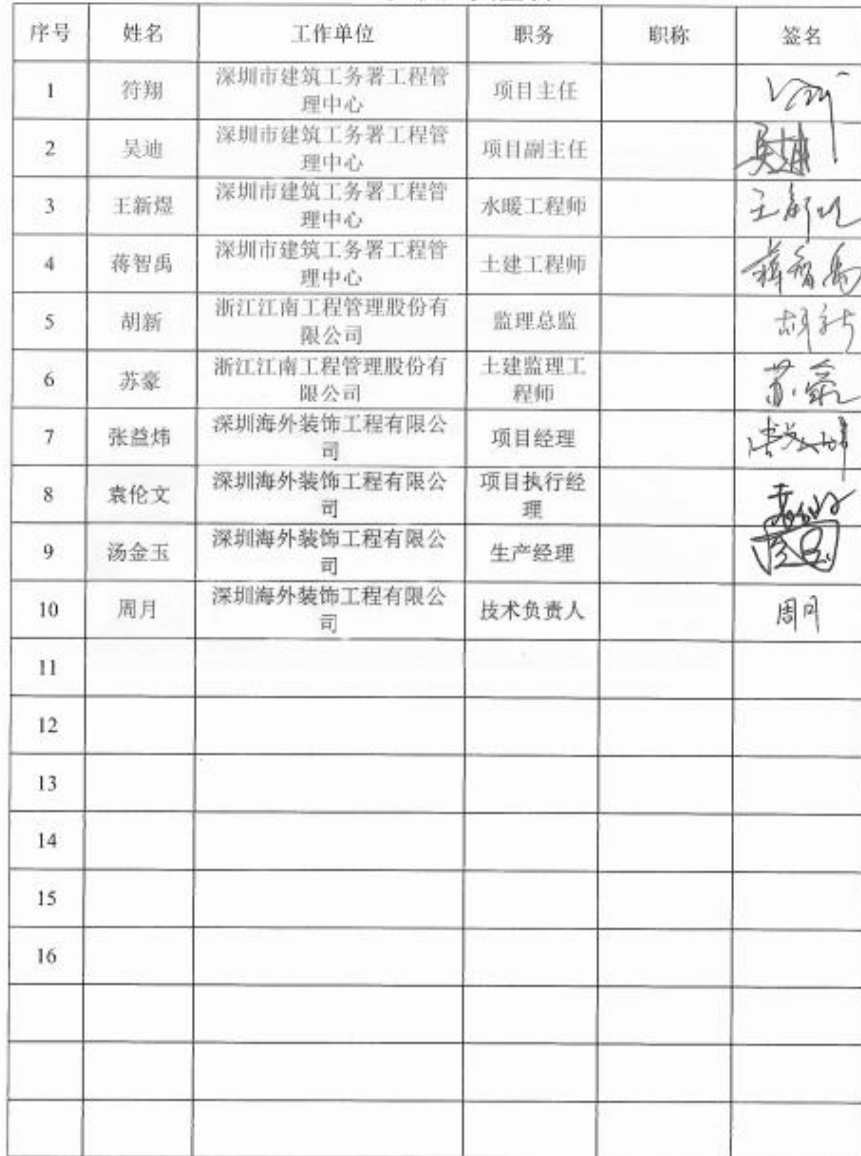 序号 姓名 工作单位 职务 职称 签名
1 符翔 深圳市建筑工务署工程管 项目主任
理中心
2 吴迪 深圳市建筑工务署工程管 项目副主任 吴迪
理中心
3 王新煜 深圳市建筑工务署工程管 水暖工程师 王新煜
理中心
4 蒋智禹 深圳市建筑工务署工程管 土建工程师 蒋智禹
理中心
5 胡新 浙江江南工程管理股份有 监理总监 胡新
限公司
6 苏豪 浙江江南工程管理股份有 土建监理工 苏豪
限公司 程师
7 张益炜 深圳海外装饰工程有限公 项目经理
司
8 袁伦文 深圳海外装饰工程有限公 项目执行经
司 理
9 汤金玉 深圳海外装饰工程有限公 生产经理
司
10 周月 深圳海外装饰工程有限公 技术负责人 周月
司
11
12
13
14
15
16